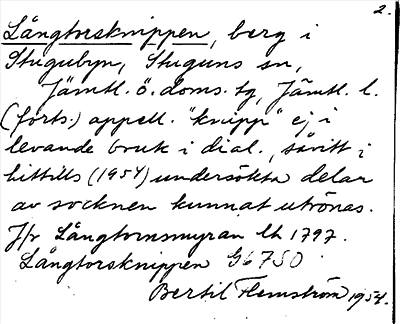 2.
Långtorsknippen, berg i
Stugubyn, Stuguns sn,
Jämtl. ö. doms. tg, Jämtl. l.
(forts.) appell. "knipp" ej i
levande bruk i dial., såvitt i
hittills (1954) undersökta delar
av socknen kunnat utrönas.
Jfr Långtornsmyran Lh 1797.
Långtorsknippen G6750
Bertil Flemström 1954.